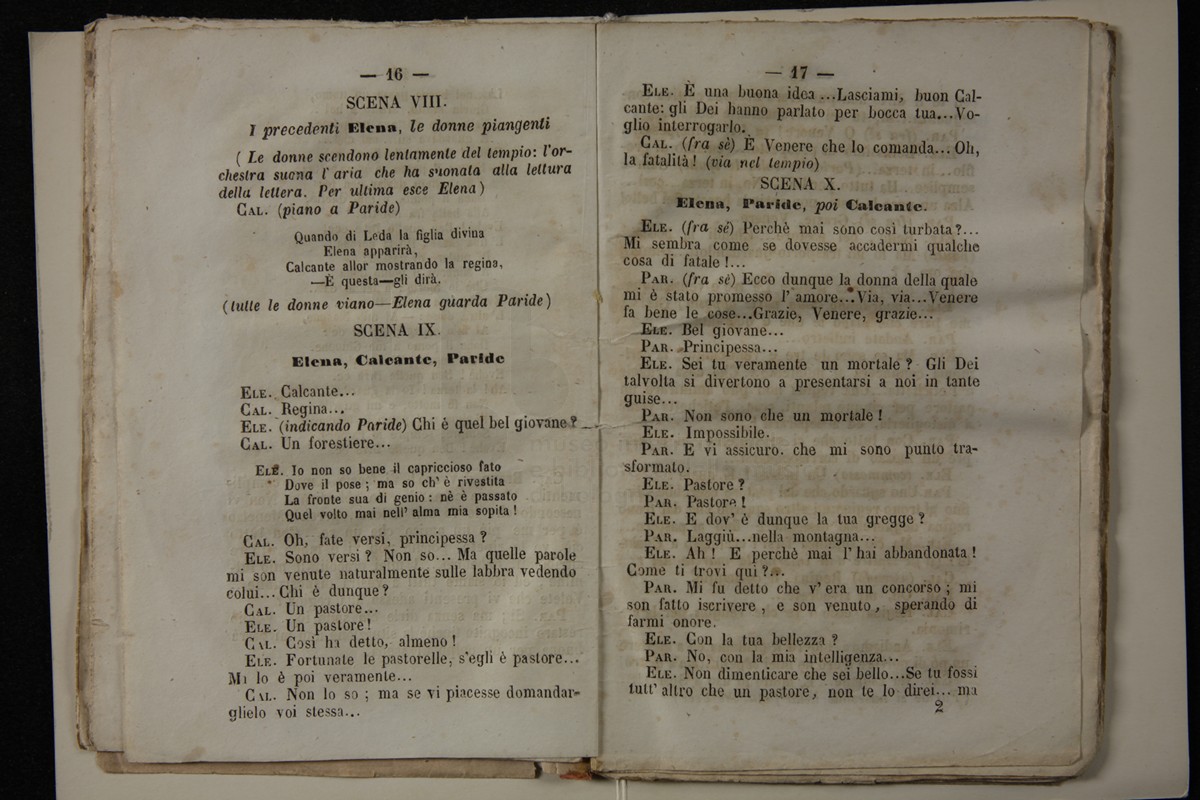 — 16 —
SCENA VIII.
I precedenti Elena, le donne piangenti
( Le donne scendono lentamente del tempio: l'or-
chestra suona l' aria che ha suonata alla lettura
della lettera. Per ultima esce Elena)
CAL. (piano a Paride)
Quando di Leda la figlia divina
Elena apparirà,
Calcante allor mostrando la regina,
—È questa—gli dirà.
(tutte le donne viano—Elena guarda Paride)
SCENA IX.
Elena, Calcante, Paride
ELE. Calcante...
CAL. Regina...
ELE. (indicando Paride) Chi è quel bel giovane?
CAL. Un forestiere...
ELE. Io non so bene il capriccioso fato
Dove il pose ; ma so ch' è rivestita
La fronte sua di genio : nè è passato
Quel volto mai nell' alma mia sopita !
CAL. Oh, fate versi, principessa ?
ELE. Sono versi ? Non so... Ma quelle parole
mi son venute naturalmente sulle labbra vedendo
colui... Chi è dunque?
CAL. Un pastore...
ELE. Un pastore!
CAL. Così ha detto, almeno !
ELE. Fortunate le pastorelle, s'egli è pastore...
Ml lo è poi veramente...
CAL. Non lo so ; ma se vi piacesse domandar-
glielo voi stessa...
— 17 —
ELE. È una buona idea ...Lasciami, buon Cal-
cante: gli Dei hanno parlato per bocca tua...Vo-
glio interrogarlo.
CAL. (fra sè) È Venere che lo comanda... Oh,
la fatalità ! (via nel tempio)
SCENA X.
Elena, Paride, poi Calcante.
ELE. (fra sè) Perchè mai sono così turbata?...
Mi sembra come se dovesse accadermi qualche
cosa di fatale !...
PAR. (fra sè) Ecco dunque la donna della quale
mi è stato promesso l' amore...Via, via...Venere
fa bene le cose...Grazie, Venere, grazie...
ELE. Bel giovane...
PAR. Principessa...
ELE. Sei tu veramente un mortale ? Gli Dei
talvolta si divertono a presentarsi a noi in tante
guise...
PAR. Non sono che un mortale !
ELE. Impossibile.
PAR. E vi assicuro. che mi sono punto tra-
sformato.
ELE. Pastore ?
PAR. Pastore !
ELE. E dov' è dunque la tua gregge ?
PAR. Laggiù...nella montagna...
ELE. Ah ! E perchè mai l' hai abbandonata !
Come ti trovi qui ?...
PAR. Mi fu detto che v' era un concorso ; mi
son fatto iscrivere , e son venuto , sperando di
farmi onore.
ELE. Con la tua bellezza ?
PAR. No, con la mia intelligenza...
ELE. Non dimenticare che sei bello...Se tu fossi
tutt' altro che un pastore, non te lo direi... ma
2